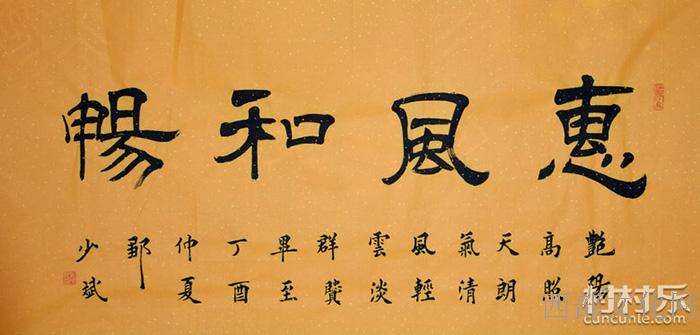 惠風和暢
艷陽
高照
天朗
氣清
風輕
雲淡
群賢
畢至
丁酉
仲夏
鄒
少斌
村村乐
cuncunle.com